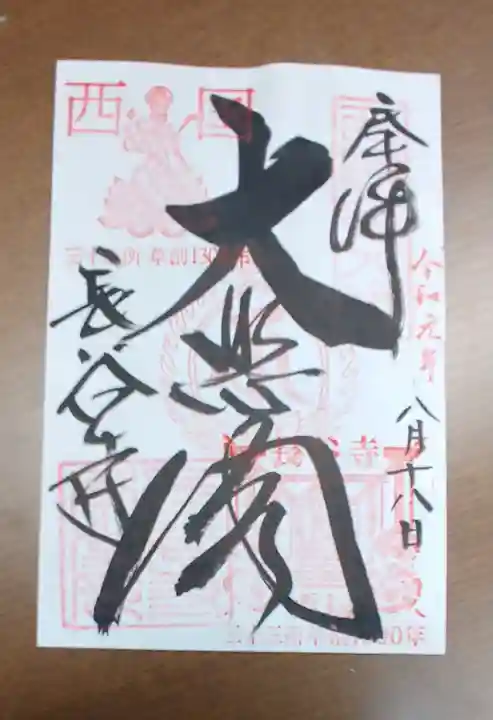 奉拝
令和元年
八月十八日
大悲閣
長谷寺
西国
三十三所 草創1300年
長谷寺
三十三所草創1300年